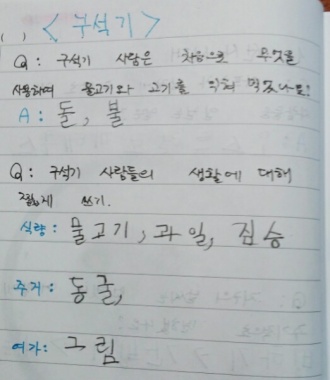 ( ) <구석기>
Q: 구석기 사람은 처음으로 무엇을
사용하여 물고기와 고기를 익혀 먹었나요?
A: 돌, 불
Q: 구석기 사람들의 생활에 대해
짧게 쓰기.
식량: 물고기, 과일, 짐승
주거: 동굴,
여가: 그림